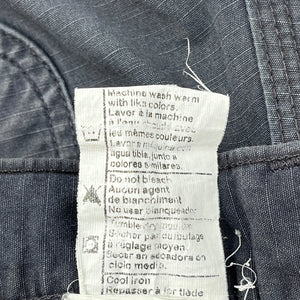 Machine wash warm
with like colors.
Laver à la machine
à l'eau chaude avec
les mêmes couleurs.
Lavar a máquina en
agua tibia, junto a
colores similares.
Do not bleach
Aucun agent
de blanchiment
No usar blanqueador
Tumble dry medium
Sécher par culbutage
à réglage moyen.
Secar en secadora en
ciclo medio.
Cool iron
Repasser à fer tiède